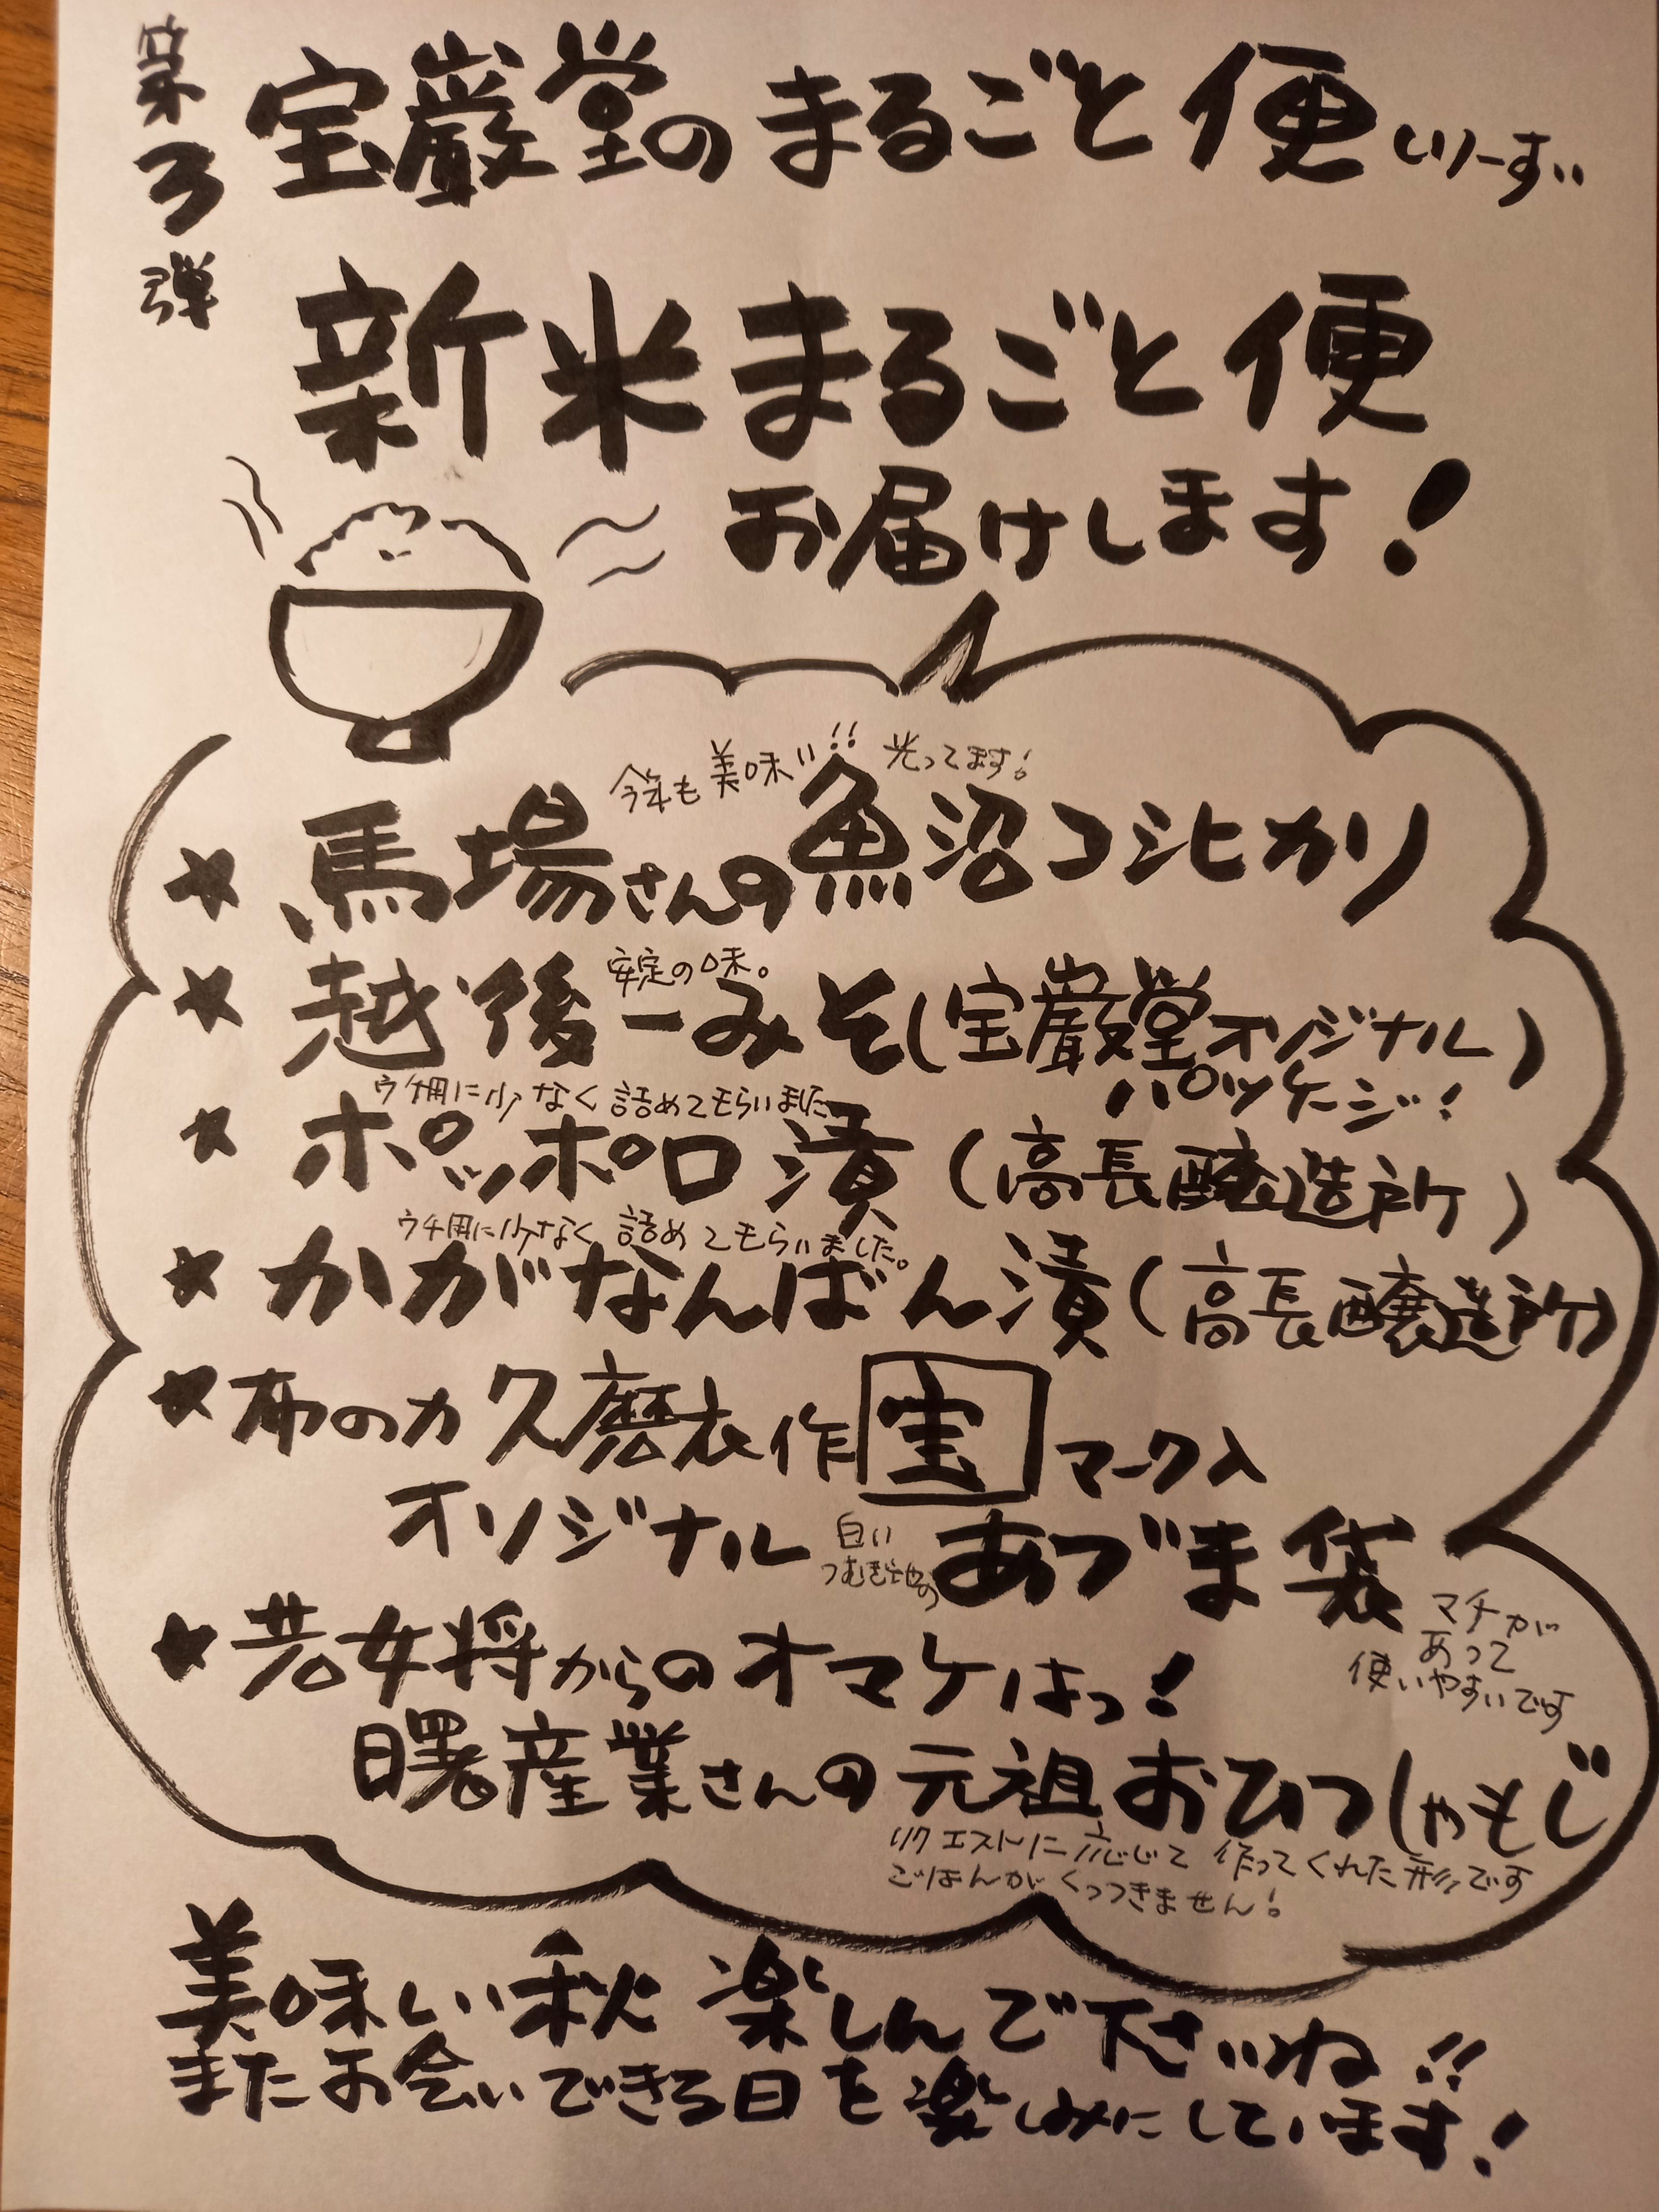 第3弾
宝巌堂のまるごと便しりーずい
新米まるごと便
お届けします!
今年も美味い!! 光ってます!
★馬場さんの魚沼コシヒカリ
安定の味。
★越後一みそ(宝巌堂オリジナル
パッケージ!)
ウチ用に少なく詰めてもらいました
★ポッポロ漬(高長醸造所)
ウチ用に少なく詰めてもらいました。
★かがなんばん漬(高長醸造所)
★布のカ 久磨衣作 宝 マーク入
オリジナル 白いつむぎ地の あづま袋
マチが
あって
使いやすいです
★若女将からのオマケはっ!
曙産業さんの元祖おひつしゃもじ
リクエストに応じて作ってくれた形です
ごはんがくっつきません!
美味しい秋 楽しんで下さいね!!
またお会いできる日を楽しみにしています!